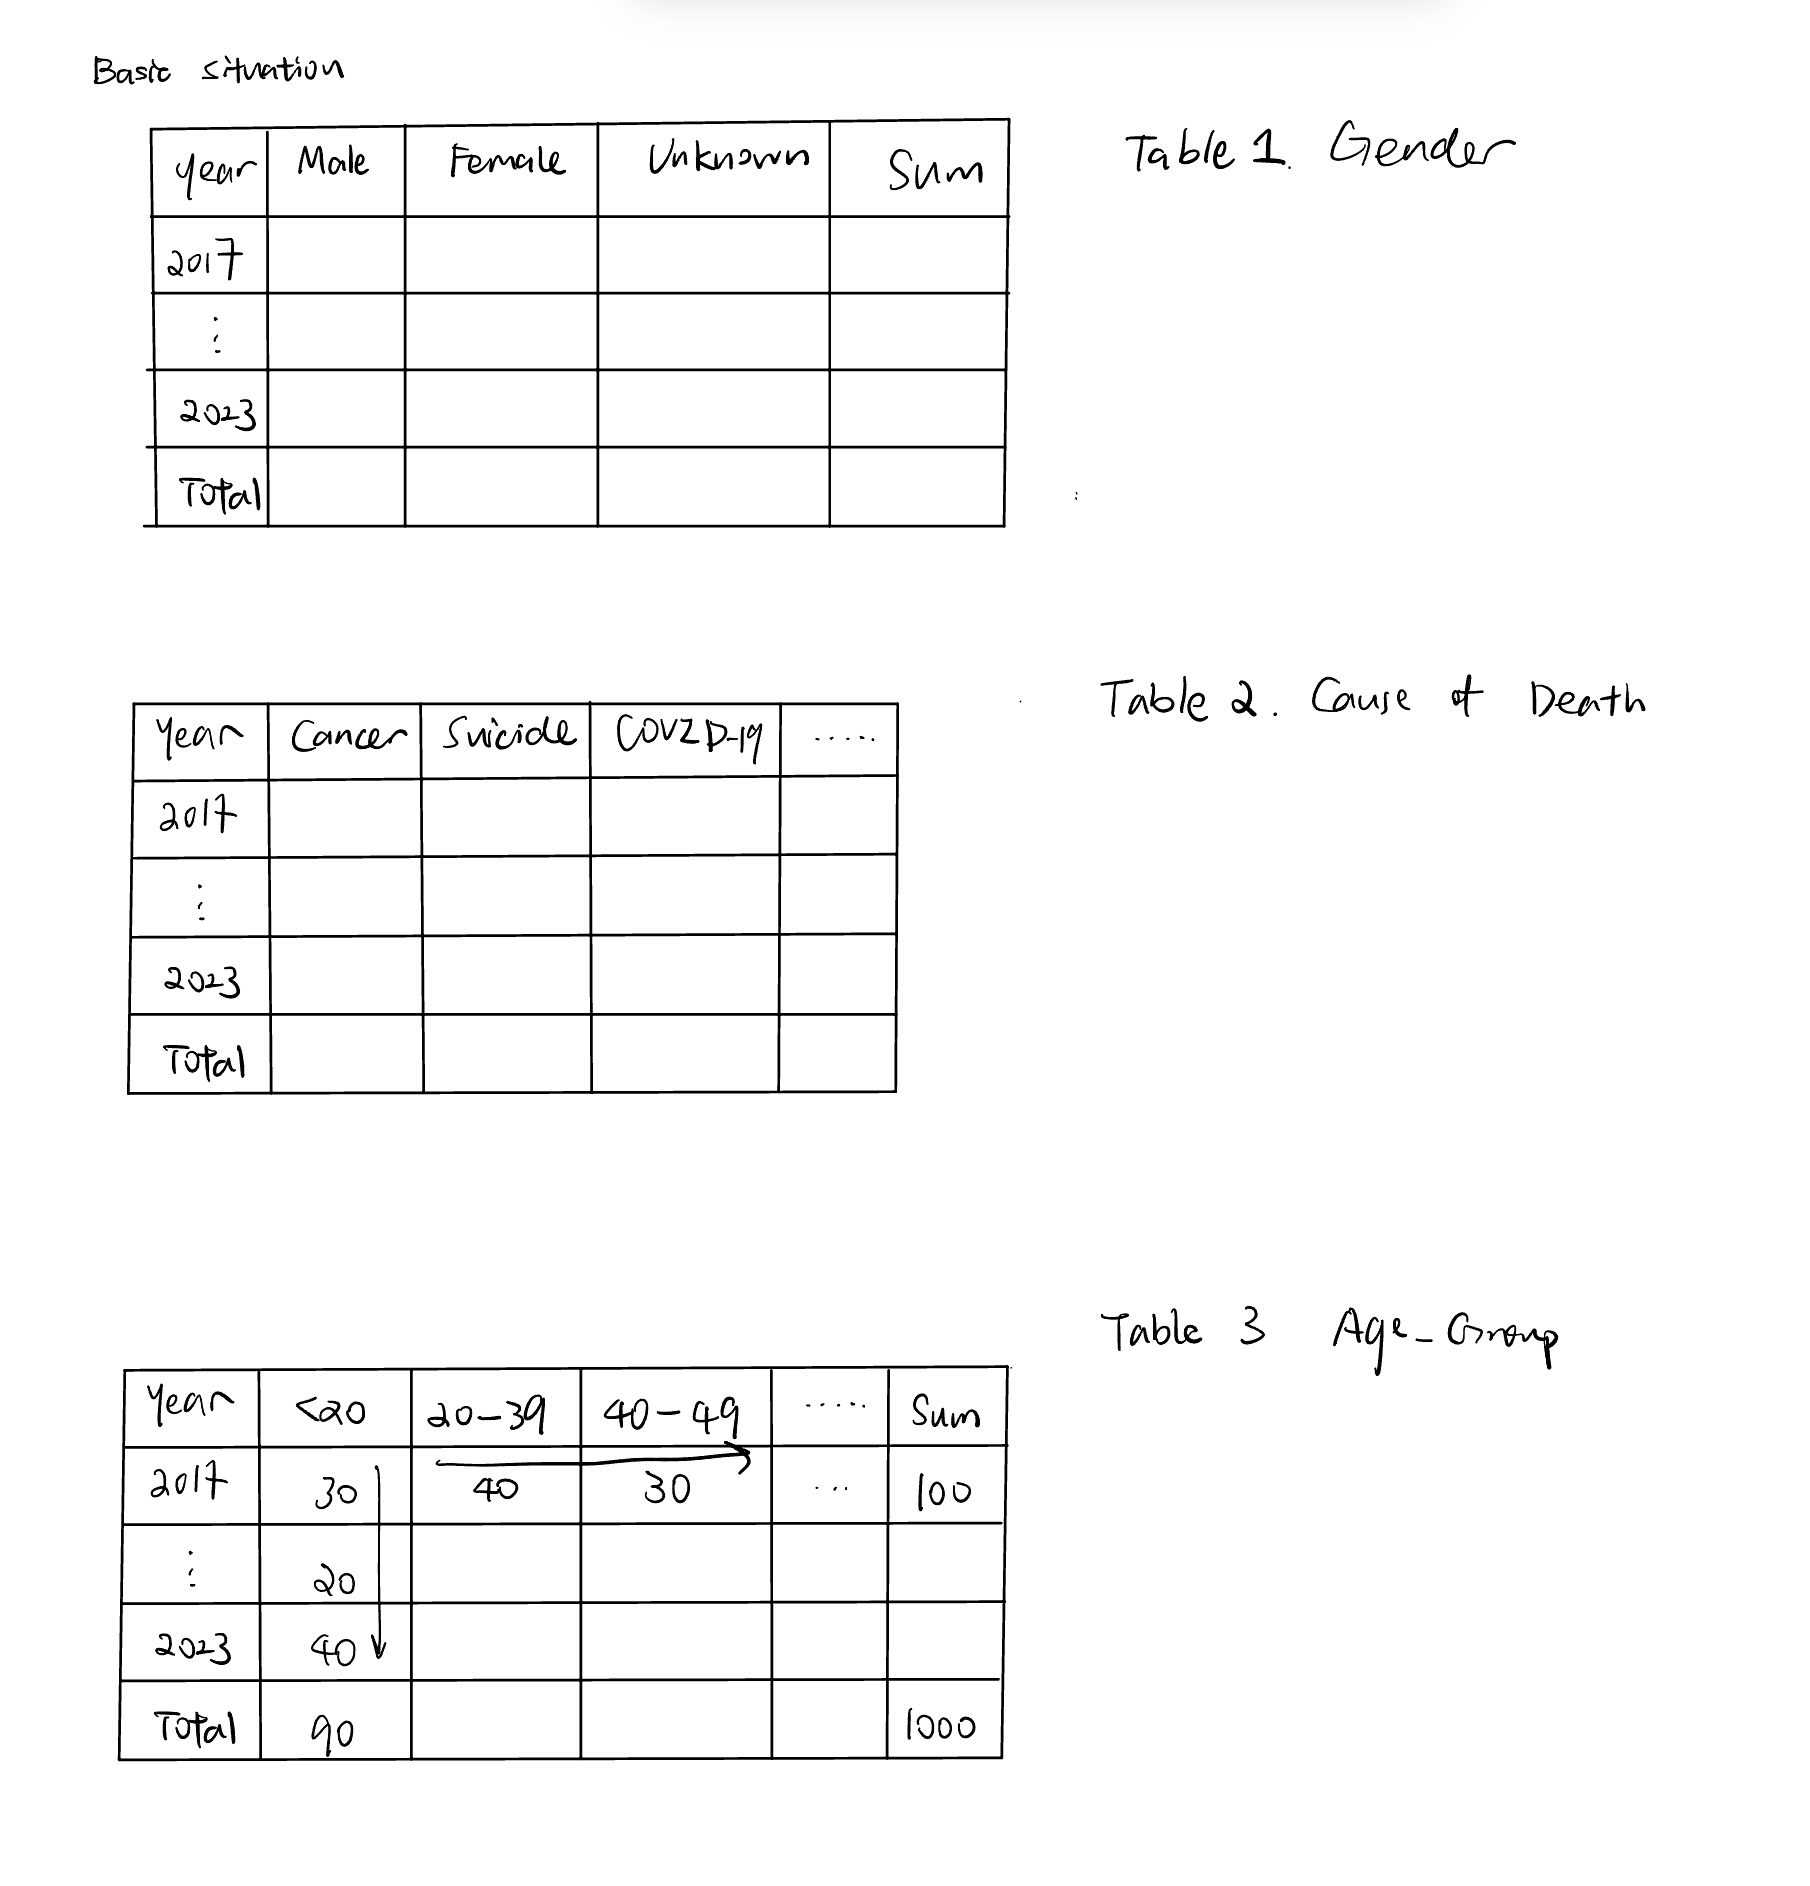 Basic situation
Table 1. Gender
year Male Female Unknown Sum
2017
⋮
2023
Total
Table 2. Cause of Death
Year Cancer Suicide COVID-19 .....
2017
⋮
2023
Total
Table 3 Age-Group
Year <20 20-39 40-49 ..... Sum
2017 30 40 30 ... 100
⋮ 20
2023 40
Total 90 1000